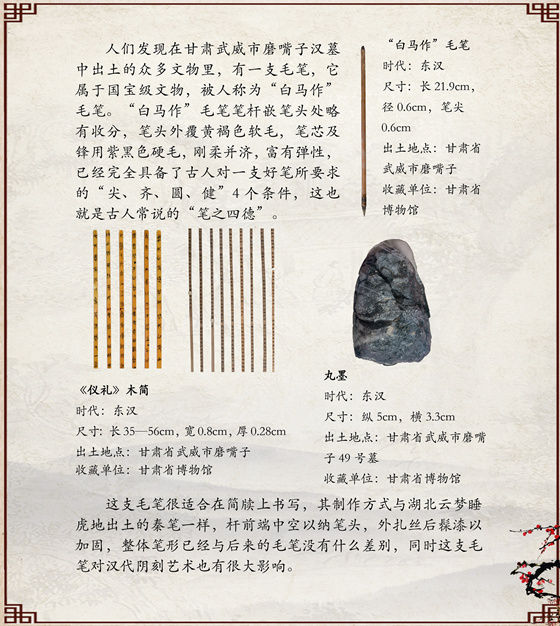 人们发现在甘肃武威市磨嘴子汉墓
中出土的众多文物里，有一支毛笔，它
属于国宝级文物，被人称为“白马作”
毛笔。“白马作”毛笔笔杆嵌笔头处略
有收分，笔头外覆黄褐色软毛，笔芯及
锋用紫黑色硬毛，刚柔并济，富有弹性，
已经完全具备了古人对一支好笔所要求
的“尖、齐、圆、健”4个条件，这也
就是古人常说的“笔之四德”。
“白马作”毛笔
时代：东汉
尺寸：长21.9cm，
径0.6cm，笔尖
0.6cm
出土地点：甘肃省
武威市磨嘴子
收藏单位：甘肃省
博物馆
《仪礼》木简
时代：东汉
尺寸：长35—56cm，宽0.8cm，厚0.28cm
出土地点：甘肃省武威市磨嘴子
收藏单位：甘肃省博物馆
丸墨
时代：东汉
尺寸：纵5cm，横3.3cm
出土地点：甘肃省武威市磨嘴
子49号墓
收藏单位：甘肃省博物馆
这支毛笔很适合在简牍上书写，其制作方式与湖北云梦睡
虎地出土的秦笔一样，杆前端中空以纳笔头，外扎丝后髹漆以
加固，整体笔形已经与后来的毛笔没有什么差别，同时这支毛
笔对汉代阴刻艺术也有很大影响。